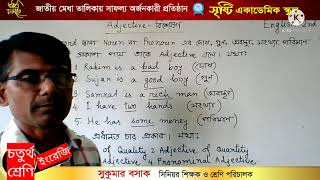 জাতীয় মেধা তালিকায় সাফল্য অর্জনকারী প্রতিষ্ঠান সৃষ্টি একাডেমিক স্কু
Adjective - বিশেষণ English 2nd
দ্বারা Noun বা Pronoun এর দোষ, গুণ, অবস্থা, সংখ্যা, পরিমাণ
প্রকাশ পায় তাকে Adjective বলে। যথা:
1. Rahim is a bad boy (দোষ)
2. Sujan is a good boy (গুণ)
3. Samzad is a rich man (অবস্থা)
4. I have two hands (সংখ্যা)
5. He has some money (পরিমাণ)
প্রধানত চার প্রকার। যথা:
of Quality 2. Adjective of Quantity
Adjective 4. Pronominal Adjective
চতুর্থ শ্রেণি
ইংরেজি
সুকুমার বসাক
সিনিয়র শিক্ষক ও শ্রেণি পরিচালক